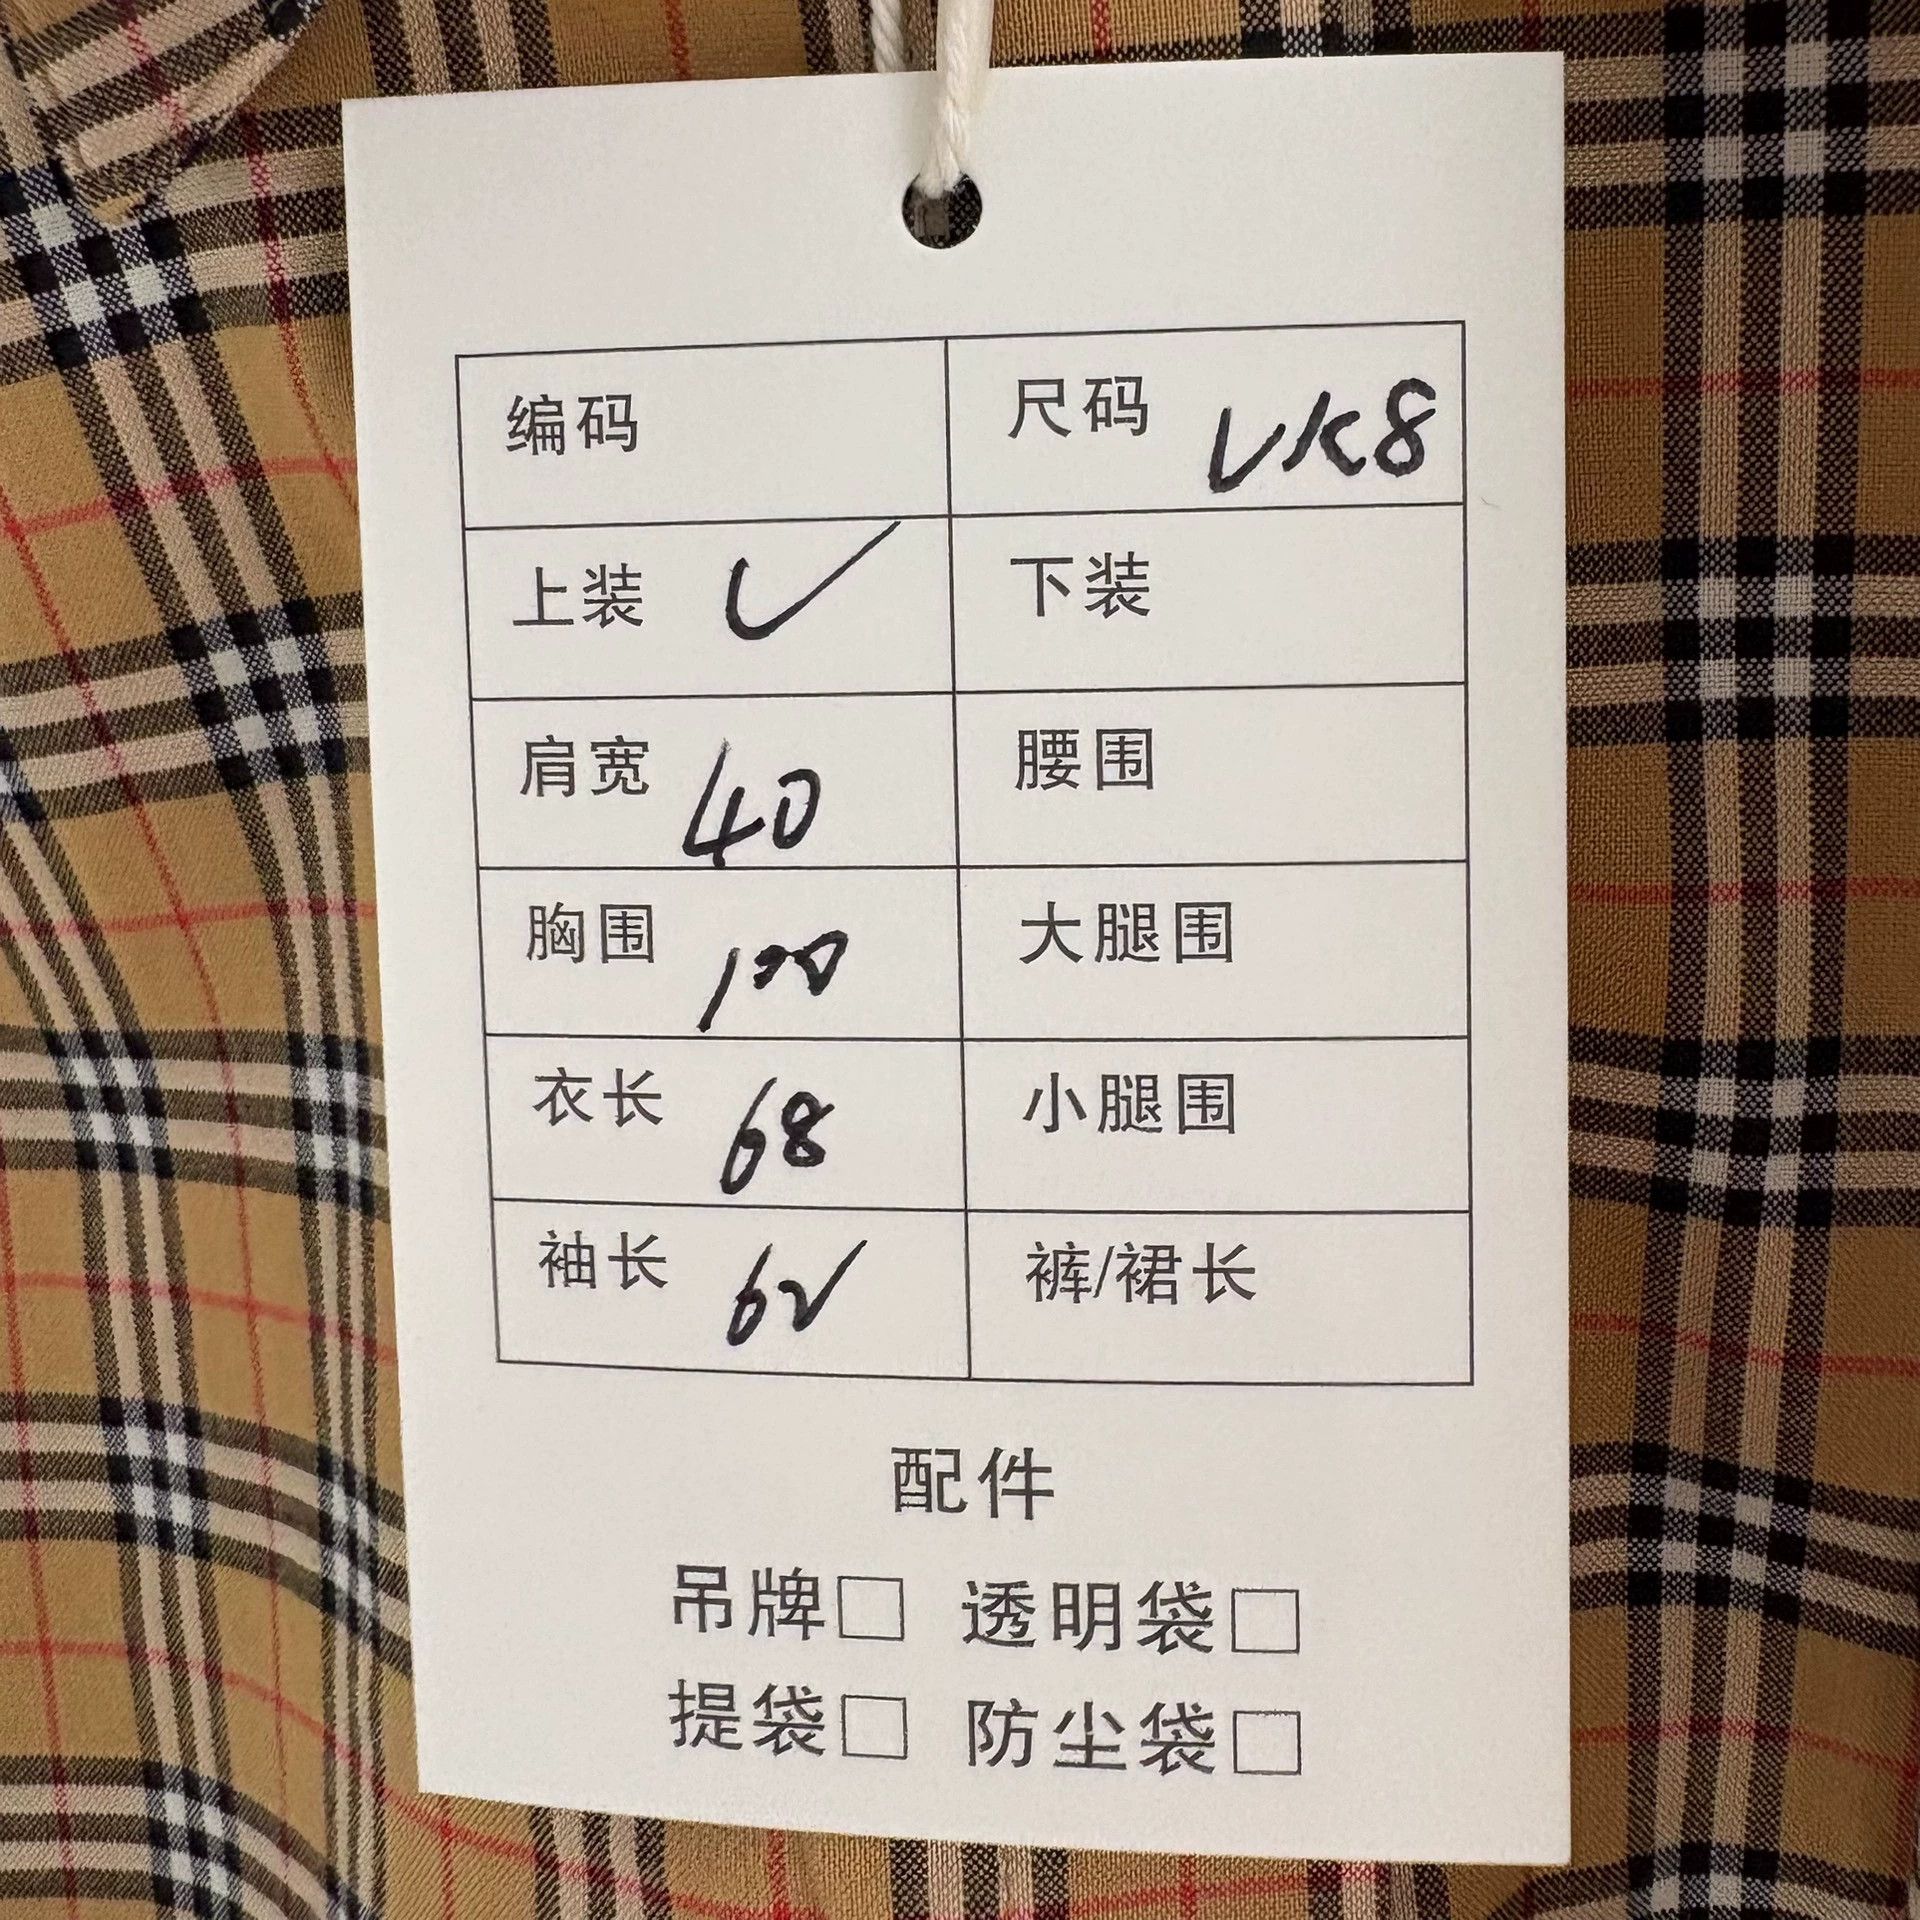 编码 尺码 UK8
上装 ✓ 下装
肩宽 40 腰围
胸围 100 大腿围
衣长 68 小腿围
袖长 62 裤/裙长
配件
吊牌□ 透明袋□
提袋□ 防尘袋□